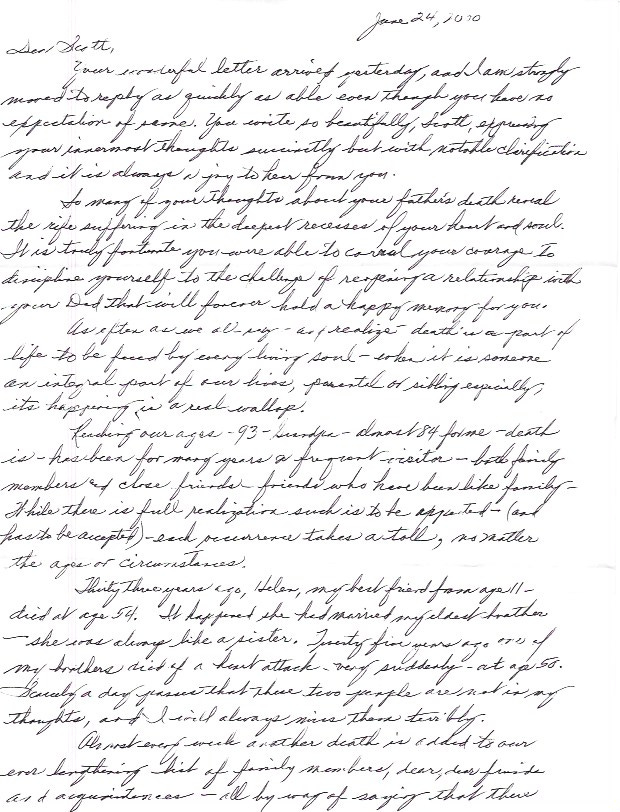 June 24, 2010
Dear Scott,
Your wonderful letter arrived yesterday, and I am strongly
moved to reply as quickly as able even though you have no
expectation of same. You write so beautifully, Scott, expressing
your innermost thoughts succinctly but with notable clarification
and it is always a joy to hear from you.
So many of your thoughts about your father's death reveal
the rife suffering in the deepest recesses of your heart and soul.
It is truly fortunate you were able to corral your courage to
discipline yourself to the challenge of reopening a relationship with
your Dad that will forever hold a happy memory for you.
As often as we all say - and realize - death is a part of
life to be faced by every living soul - when it is someone
an integral part of our lives, parental or sibling especially,
its happening is a real wallop.
Reaching our ages - 93 - Grandpa - almost 84 for me - death
is - has been for many years a frequent visitor - both family
members and close friends - friends who have been like family -
While there is full realization such is to be expected - (and
has to be accepted) - each occurrence takes a toll, no matter
the ages or circumstances.
Thirty three years ago, Helen, my best friend from age 11 -
died at age 54. It happened she had married my eldest brother
- she was always like a sister. Twenty five years ago one of
my brothers died of a heart attack - very suddenly - at age 50.
Scarcely a day passes that these two people are not in my
thoughts, and I will always miss them terribly.
Almost every week another death is added to our
ever lengthening list of family members, dear, dear friends
and acquaintances - all by way of saying that there